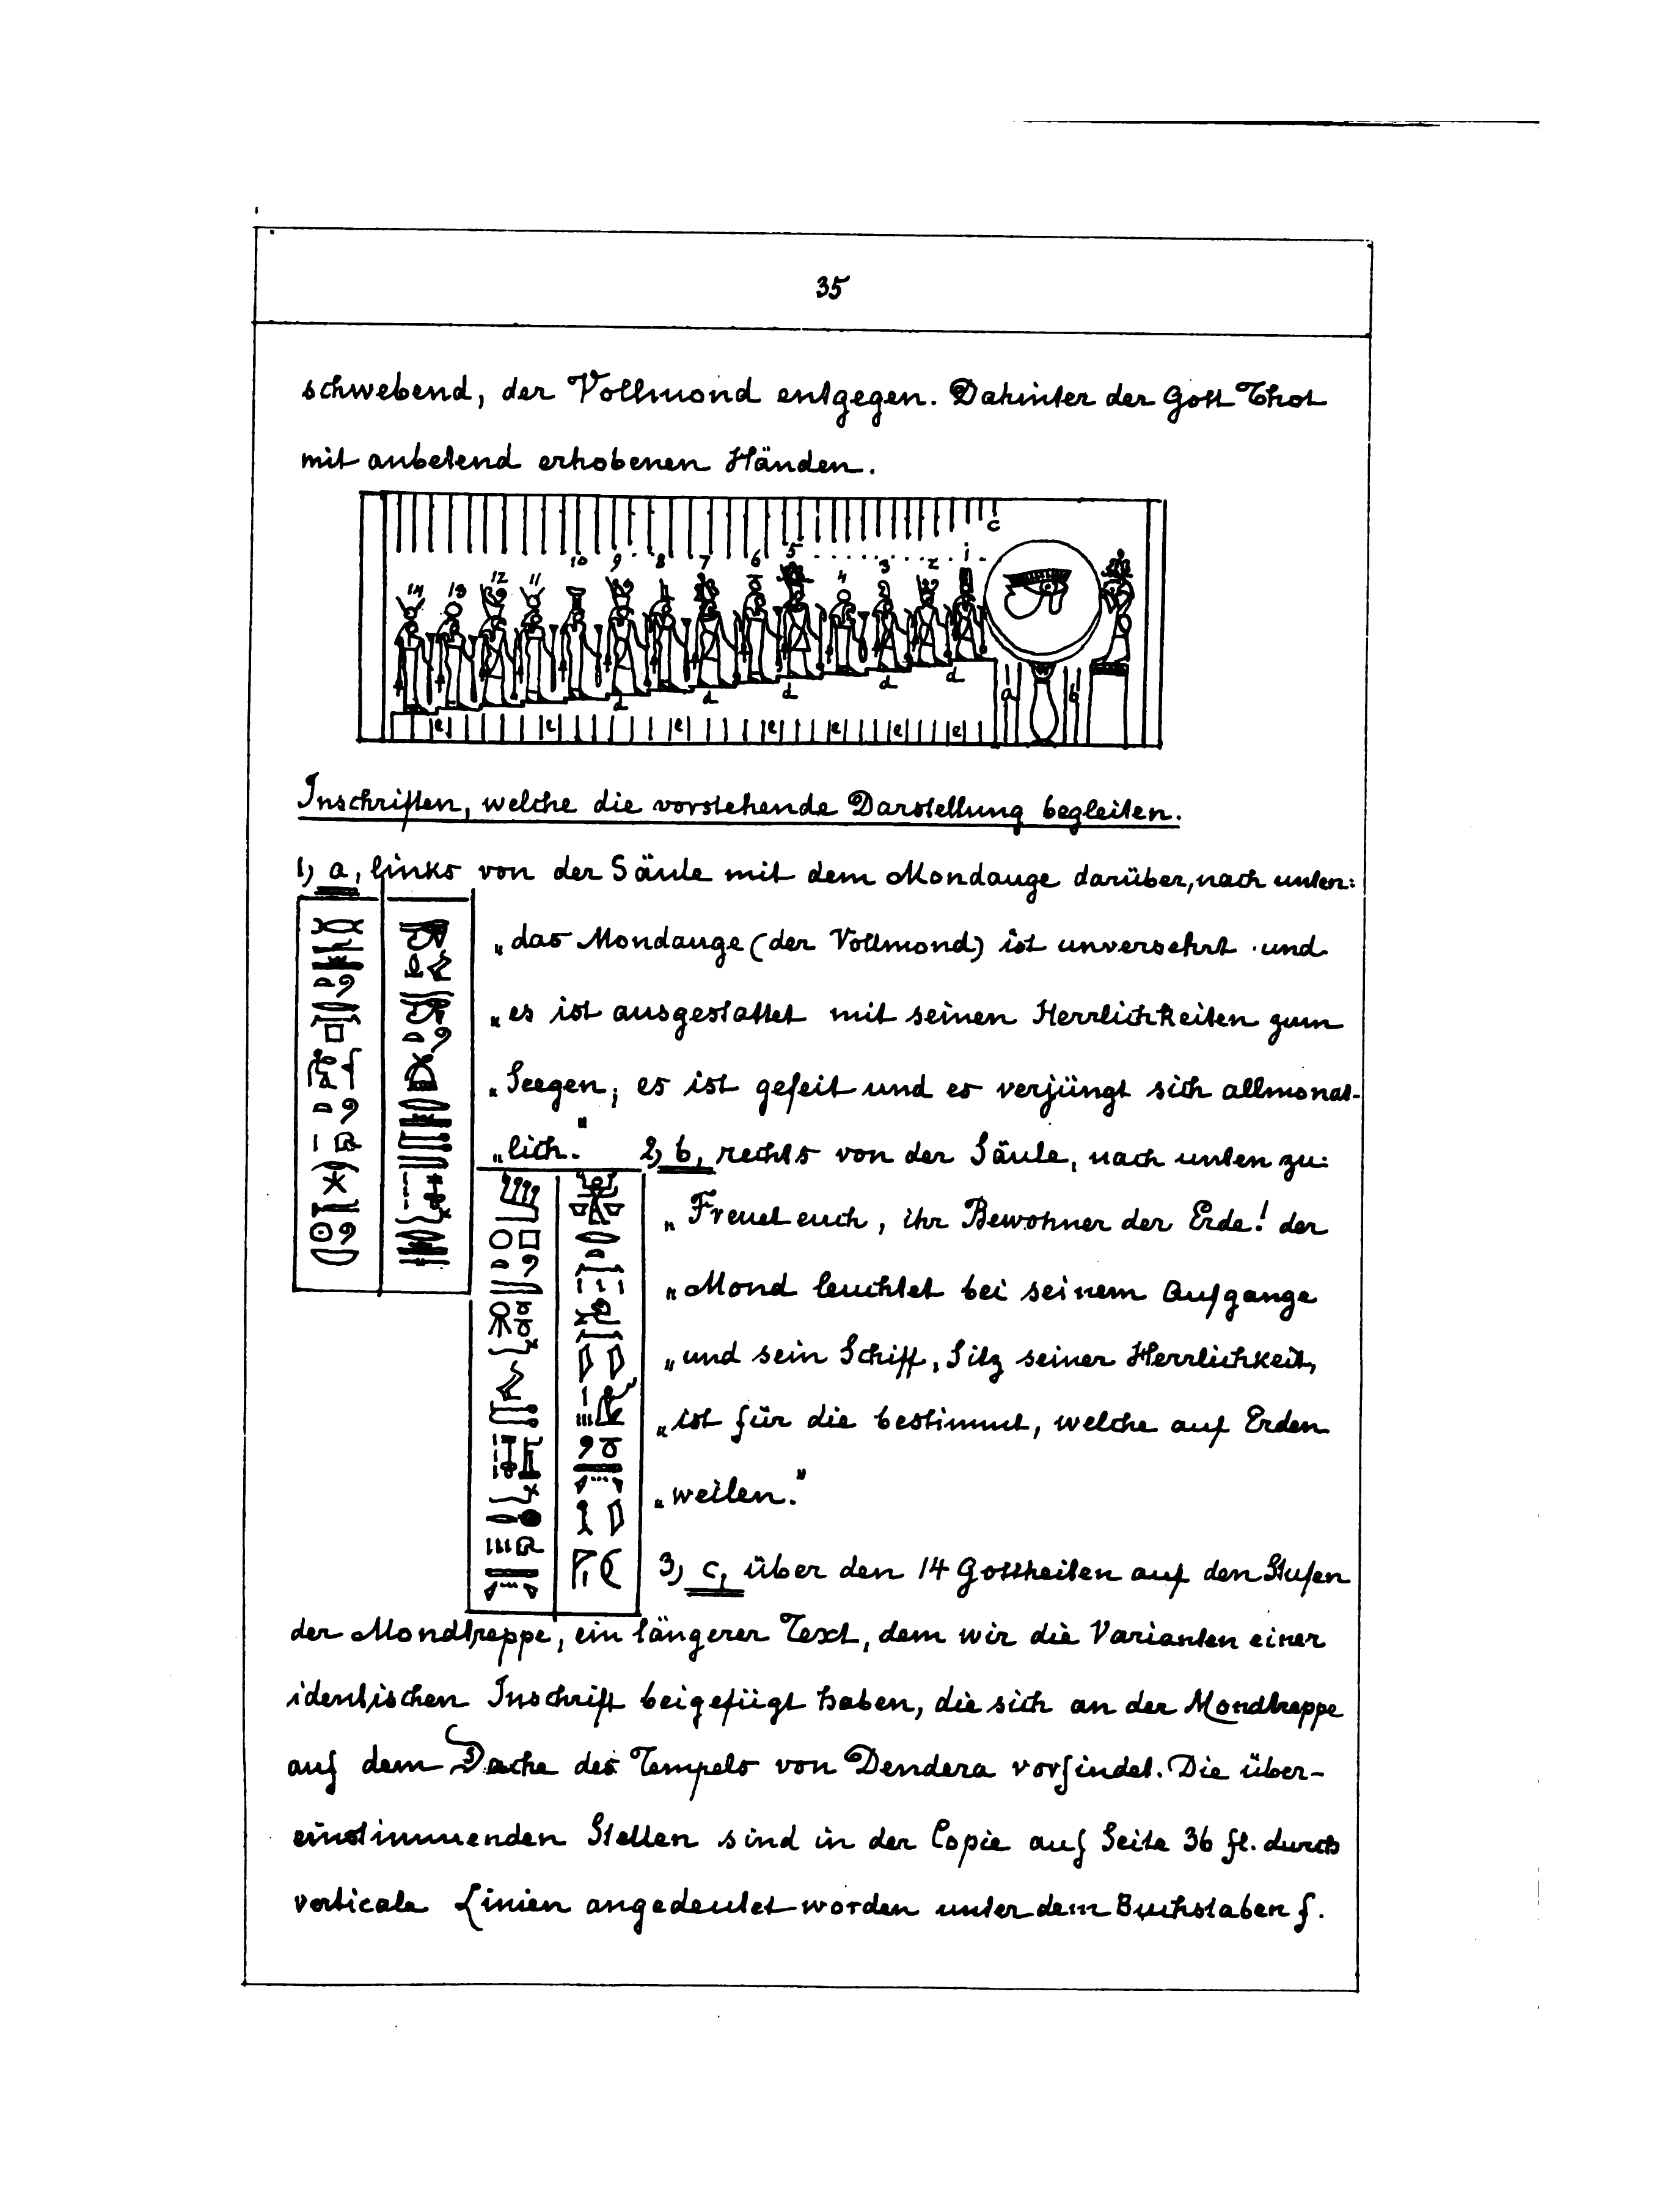 35
schwebend, der Vollmond entgegen. Dahinter der Gott Thot
mit anbetend erhobenen Händen.
c
14 13 12 11 10 9 8 7 6 5 4 3 2 1
d d d d d
a b
e e e e e e e
Inschriften, welche die vorstehende Darstellung begleiten.
1) a, links von der Säule mit dem Mondauge darüber, nach unten:
„das Mondauge (der Vollmond) ist unversehrt und
„es ist ausgestattet mit seinen Herrlichkeiten zum
„Seegen; es ist gefeit und es verjüngt sich allmonat-
„lich." 2) b, rechts von der Säule, nach unten zu:
„Freuet euch, ihr Bewohner der Erde! der
„Mond leuchtet bei seinem Aufgange
„und sein Schiff, Sitz seiner Herrlichkeit,
„ist für die bestimmt, welche auf Erden
„weilen."
3) c, über den 14 Gottheiten auf den Stufen
der Mondtreppe, ein längerer Text, dem wir die Varianten einer
identischen Inschrift beigefügt haben, die sich an der Mondtreppe
auf dem Dache des Tempels von Dendera vorfindet. Die über-
einstimmenden Stellen sind in der Copie auf Seite 36 fl. durch
verticale Linien angedeutet worden unter dem Buchstaben f.